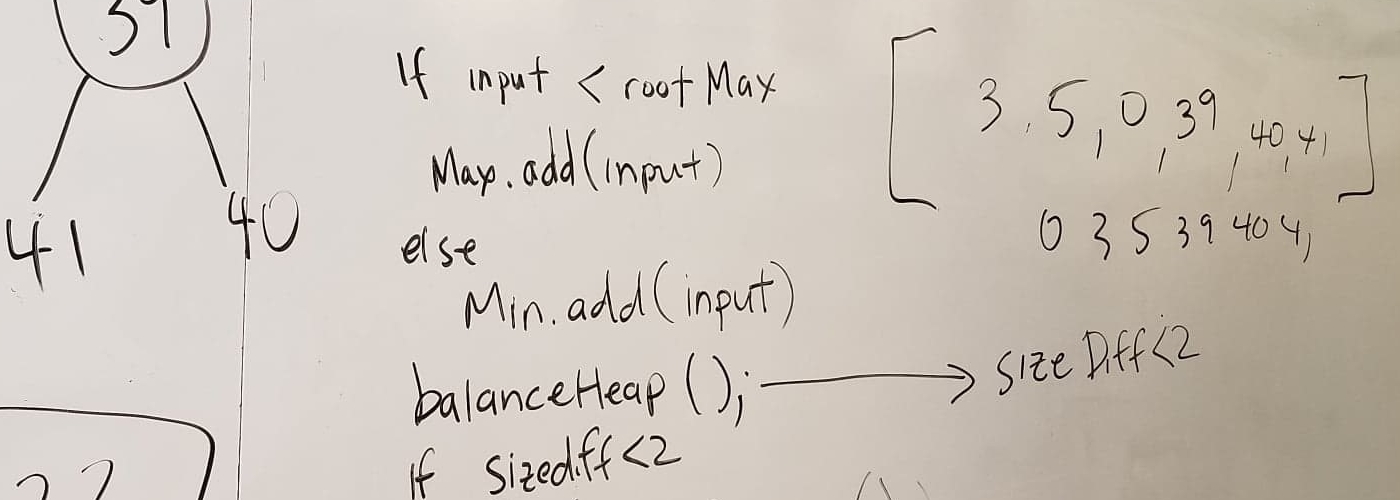 39
41
40
If input < rootMax
Max.add(input)
else
Min.add(input)
balanceHeap(); → sizeDiff<2
if sizediff<2
[3, 5, 0, 39, 40, 41]
0 3 5 39 40 41